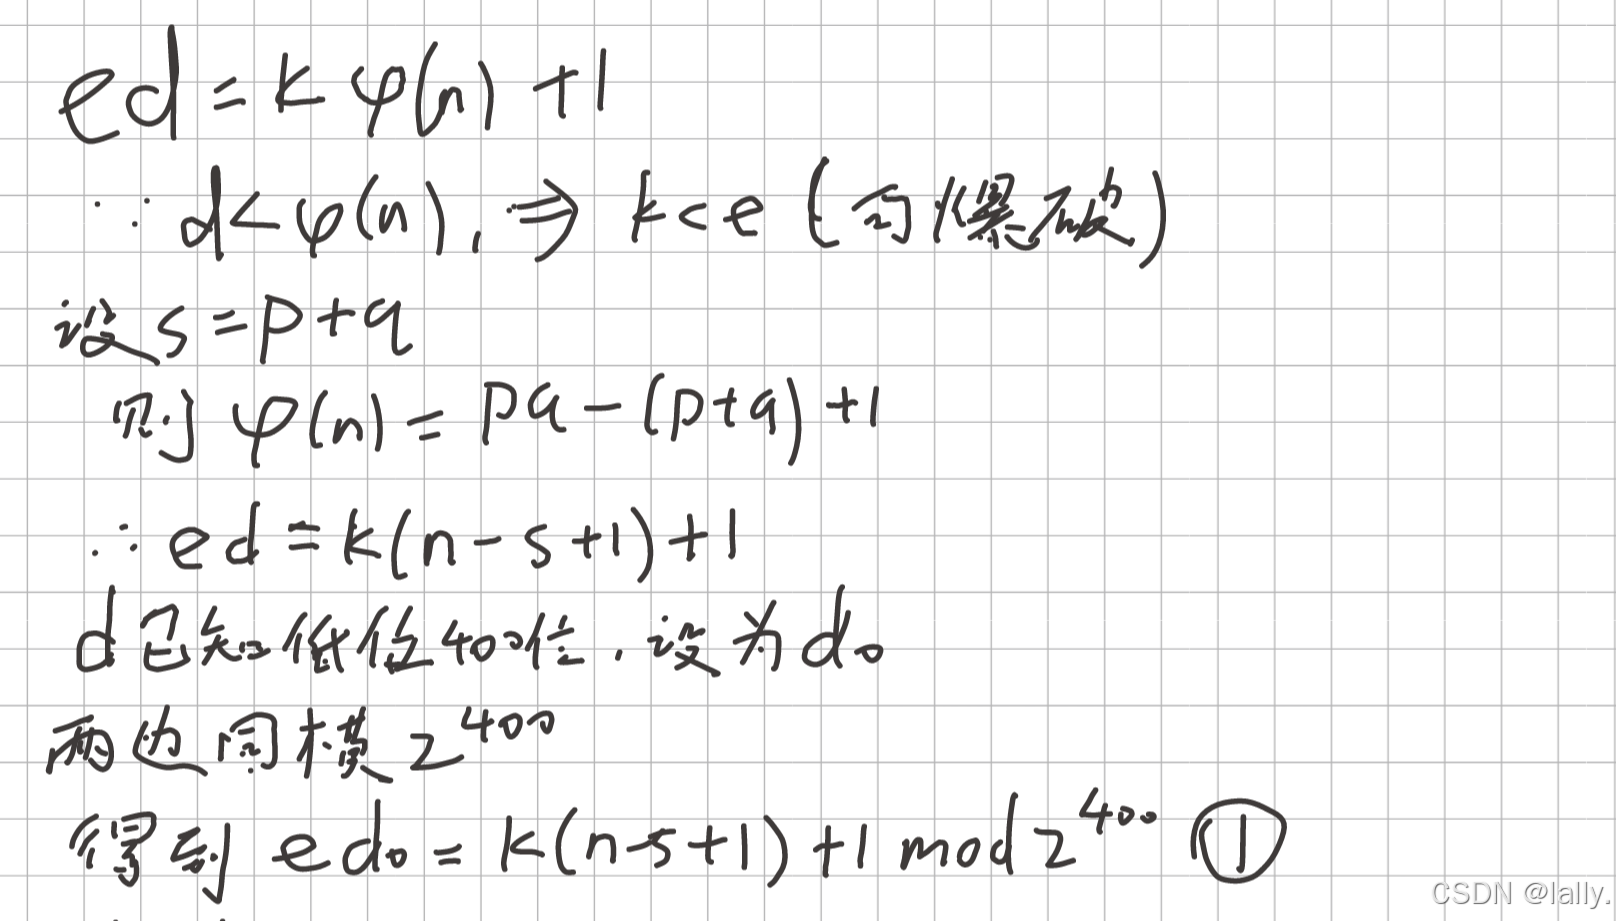 ed = kφ(n) + 1
∵ d < φ(n), ⇒ k < e (可爆破)
设 s = p + q
则 φ(n) = pq - (p+q) + 1
∴ ed = k(n - s + 1) + 1
d已知低位400位, 设为d₀
两边同模 2⁴⁰⁰
得到 ed₀ = k(n-s+1) + 1 mod 2⁴⁰⁰ ①
CSDN @lally.